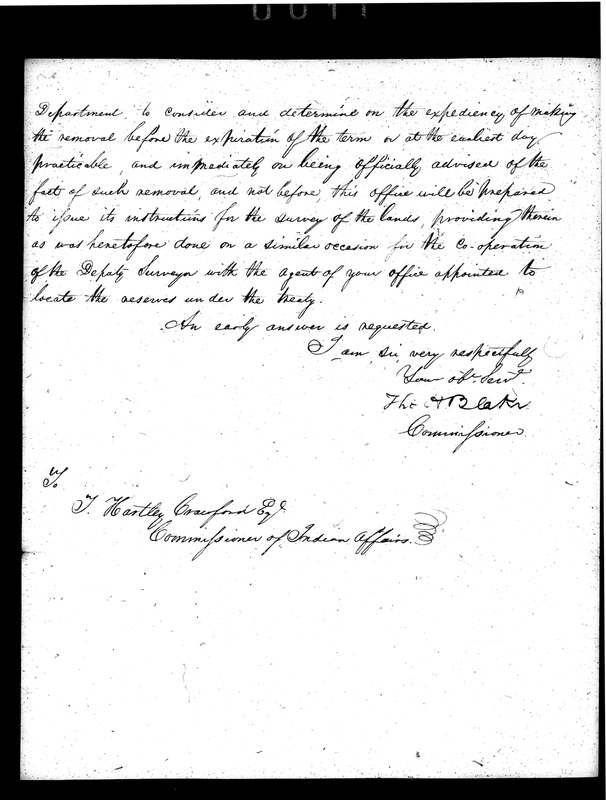 Department, to consider and determine on the expediency of making
the removal before the expiration of the term or at the earliest day
practicable, and immediately on being officially advised of the
fact of such removal, and not before, this office will be prepared
to issue its instructions for the survey of the lands, providing therein
as was heretofore done on a similar occasion for the Co-operation
of the Deputy Surveyor with the agent of your office appointed to
locate the reserves under the treaty.
An early answer is requested.
I am, sir, very respectfully
Your obt. Servt.
Tho: H Blake
Commissioner.
To
T. Hartley Crawford Esqr.
Commissioner of Indian Affairs.